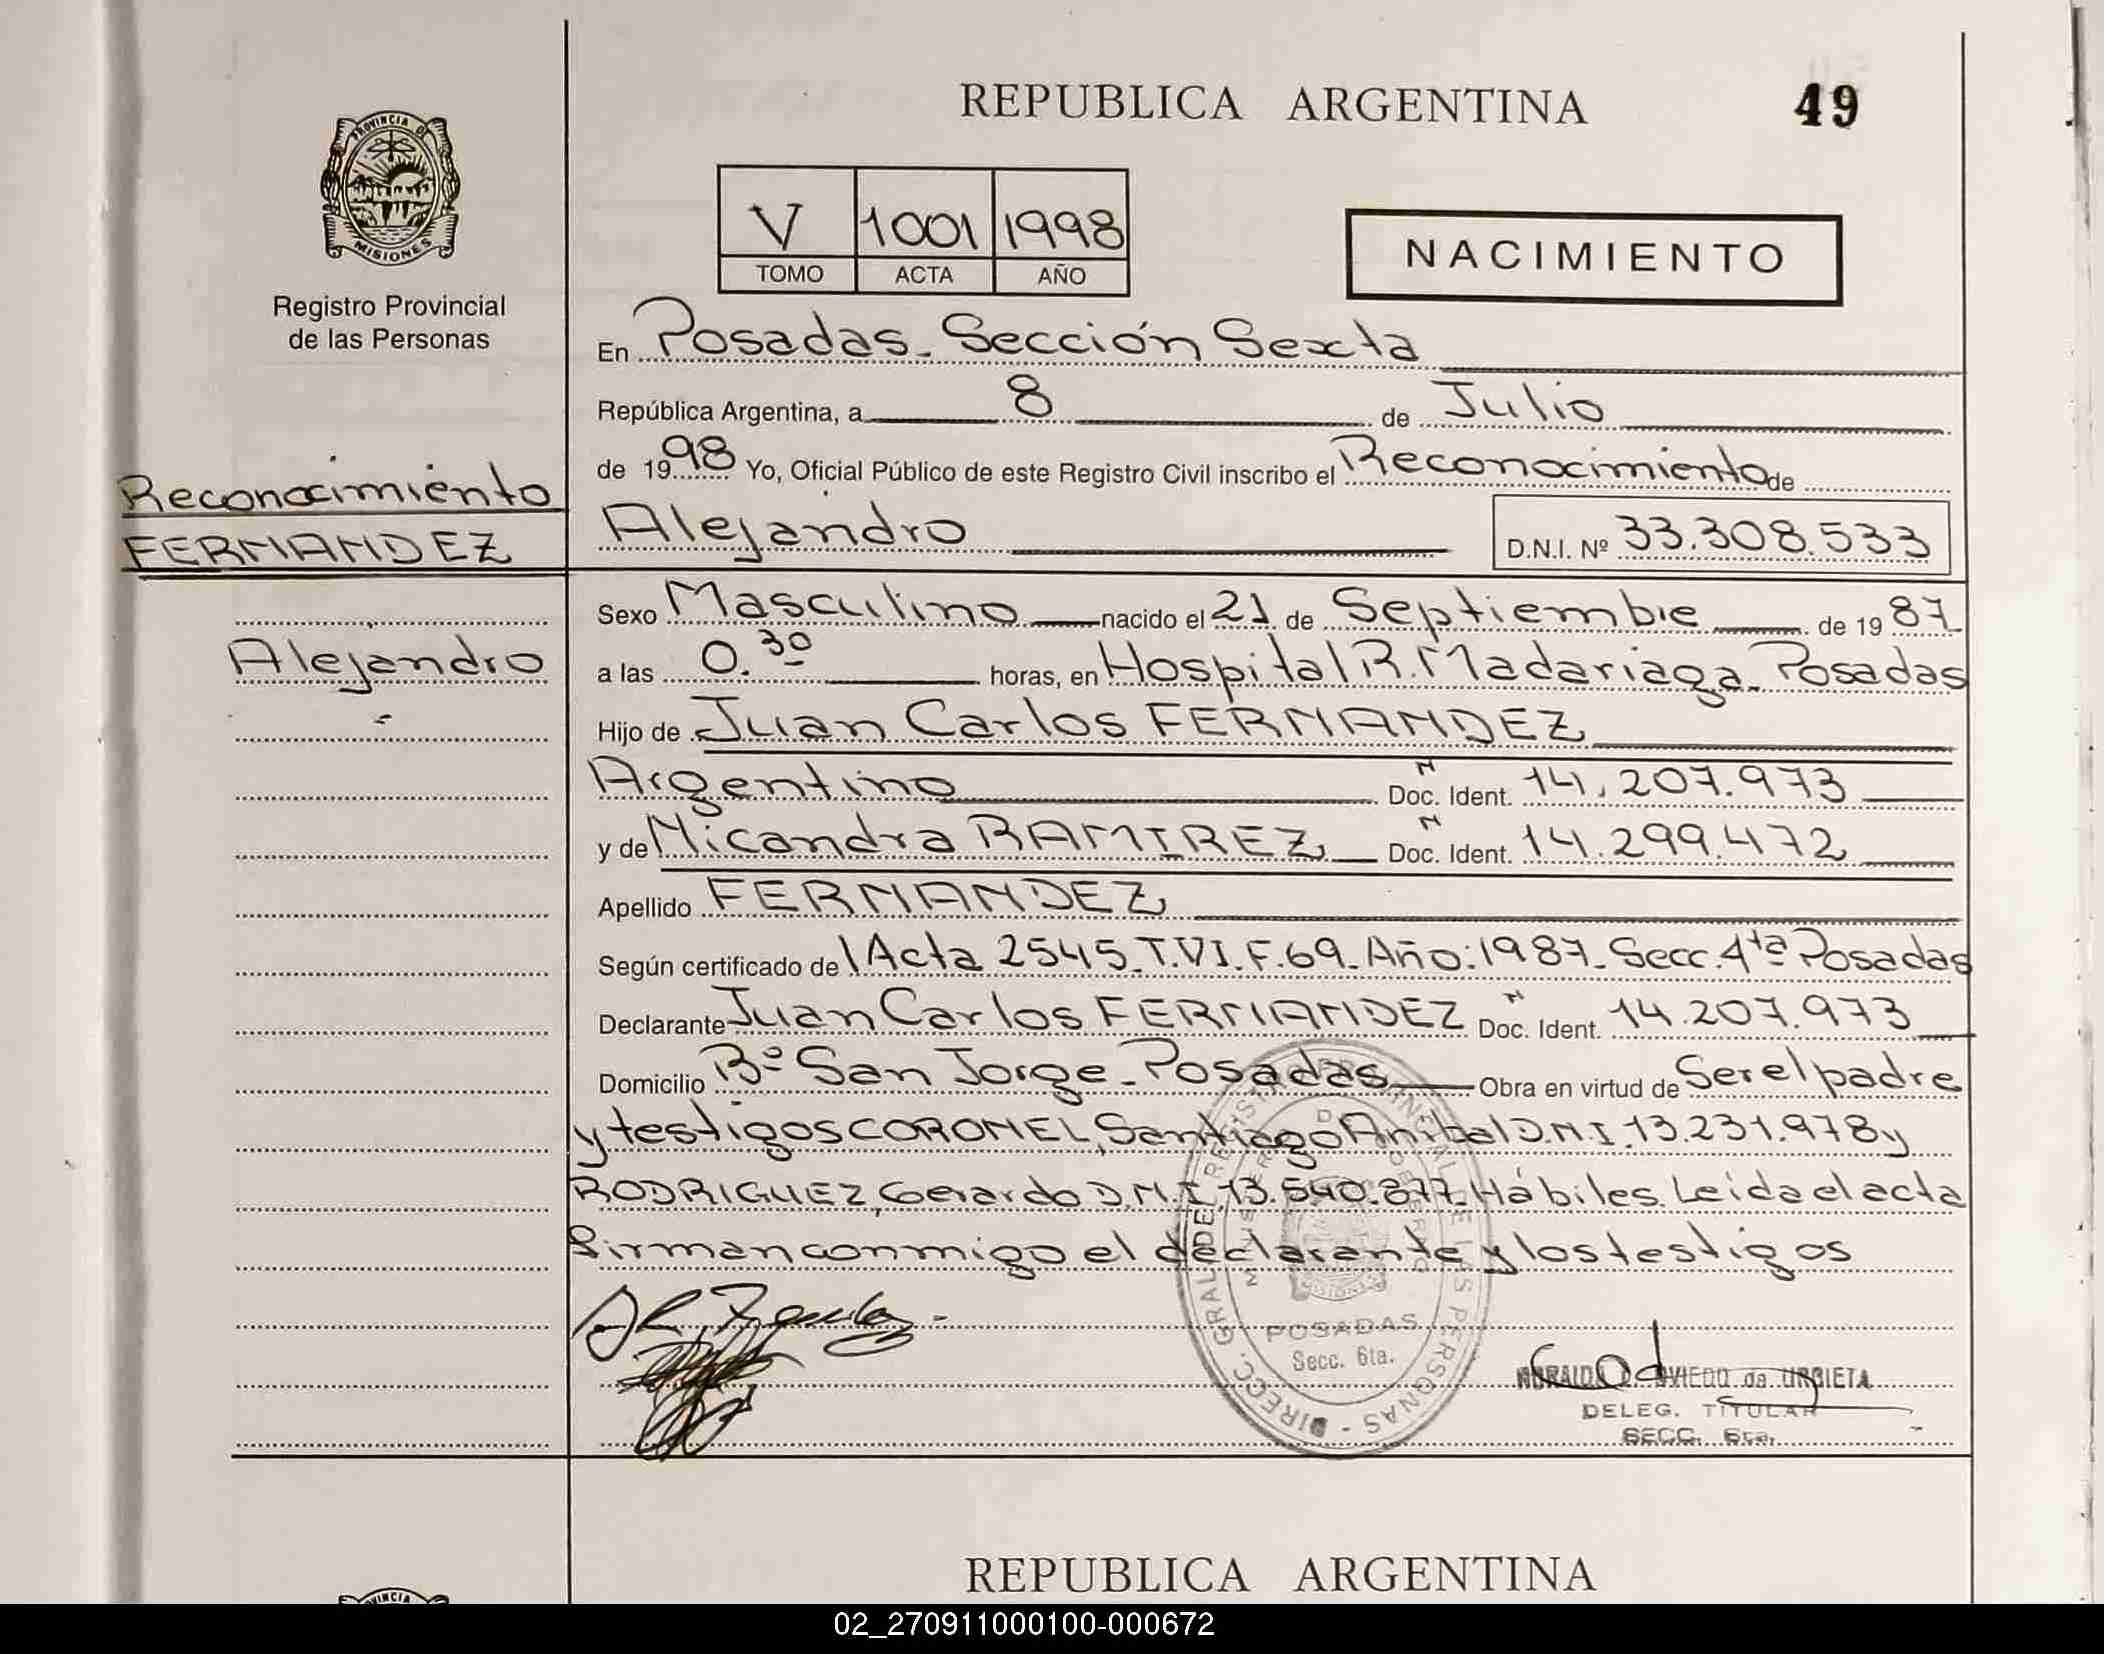 REPUBLICA ARGENTINA
49
PROVINCIA DE
MISIONES
Registro Provincial
de las Personas
V 1001 1998
TOMO ACTA AÑO
NACIMIENTO
En Posadas. Sección Sexta
República Argentina, a 8 de Julio
de 1998 Yo, Oficial Público de este Registro Civil inscribo el Reconocimiento de
Reconocimiento
FERNANDEZ
Alejandro D.N.I. Nº 33.308.533
Sexo Masculino nacido el 21 de Septiembre de 1987
Alejandro
a las 0.30 horas, en Hospital R. Madariaga. Posadas
Hijo de Juan Carlos FERNANDEZ
Argentino N Doc. Ident. 14.207.973
y de Nicandra RAMIREZ N Doc. Ident. 14.299.472
Apellido FERNANDEZ
Según certificado del Acta 2545. T.VI. F.69. Año: 1987. Secc. 4ta Posadas
Declarante Juan Carlos FERNANDEZ N Doc. Ident. 14.207.973
Domicilio Bº San Jorge. Posadas Obra en virtud de Ser el padre
y testigos CORONEL, Santiago Anibal D.N.I. 13.231.978 y
RODRIGUEZ, Gerardo D.N.I. 13.540.877. Hábiles. Leida el acta
firman conmigo el declarante y los testigos
POSADAS
Secc. 6ta.
OVIEDO de URBIETA
DELEG. TITULAR
SECC. 6ta.
REPUBLICA ARGENTINA
02_270911000100-000672